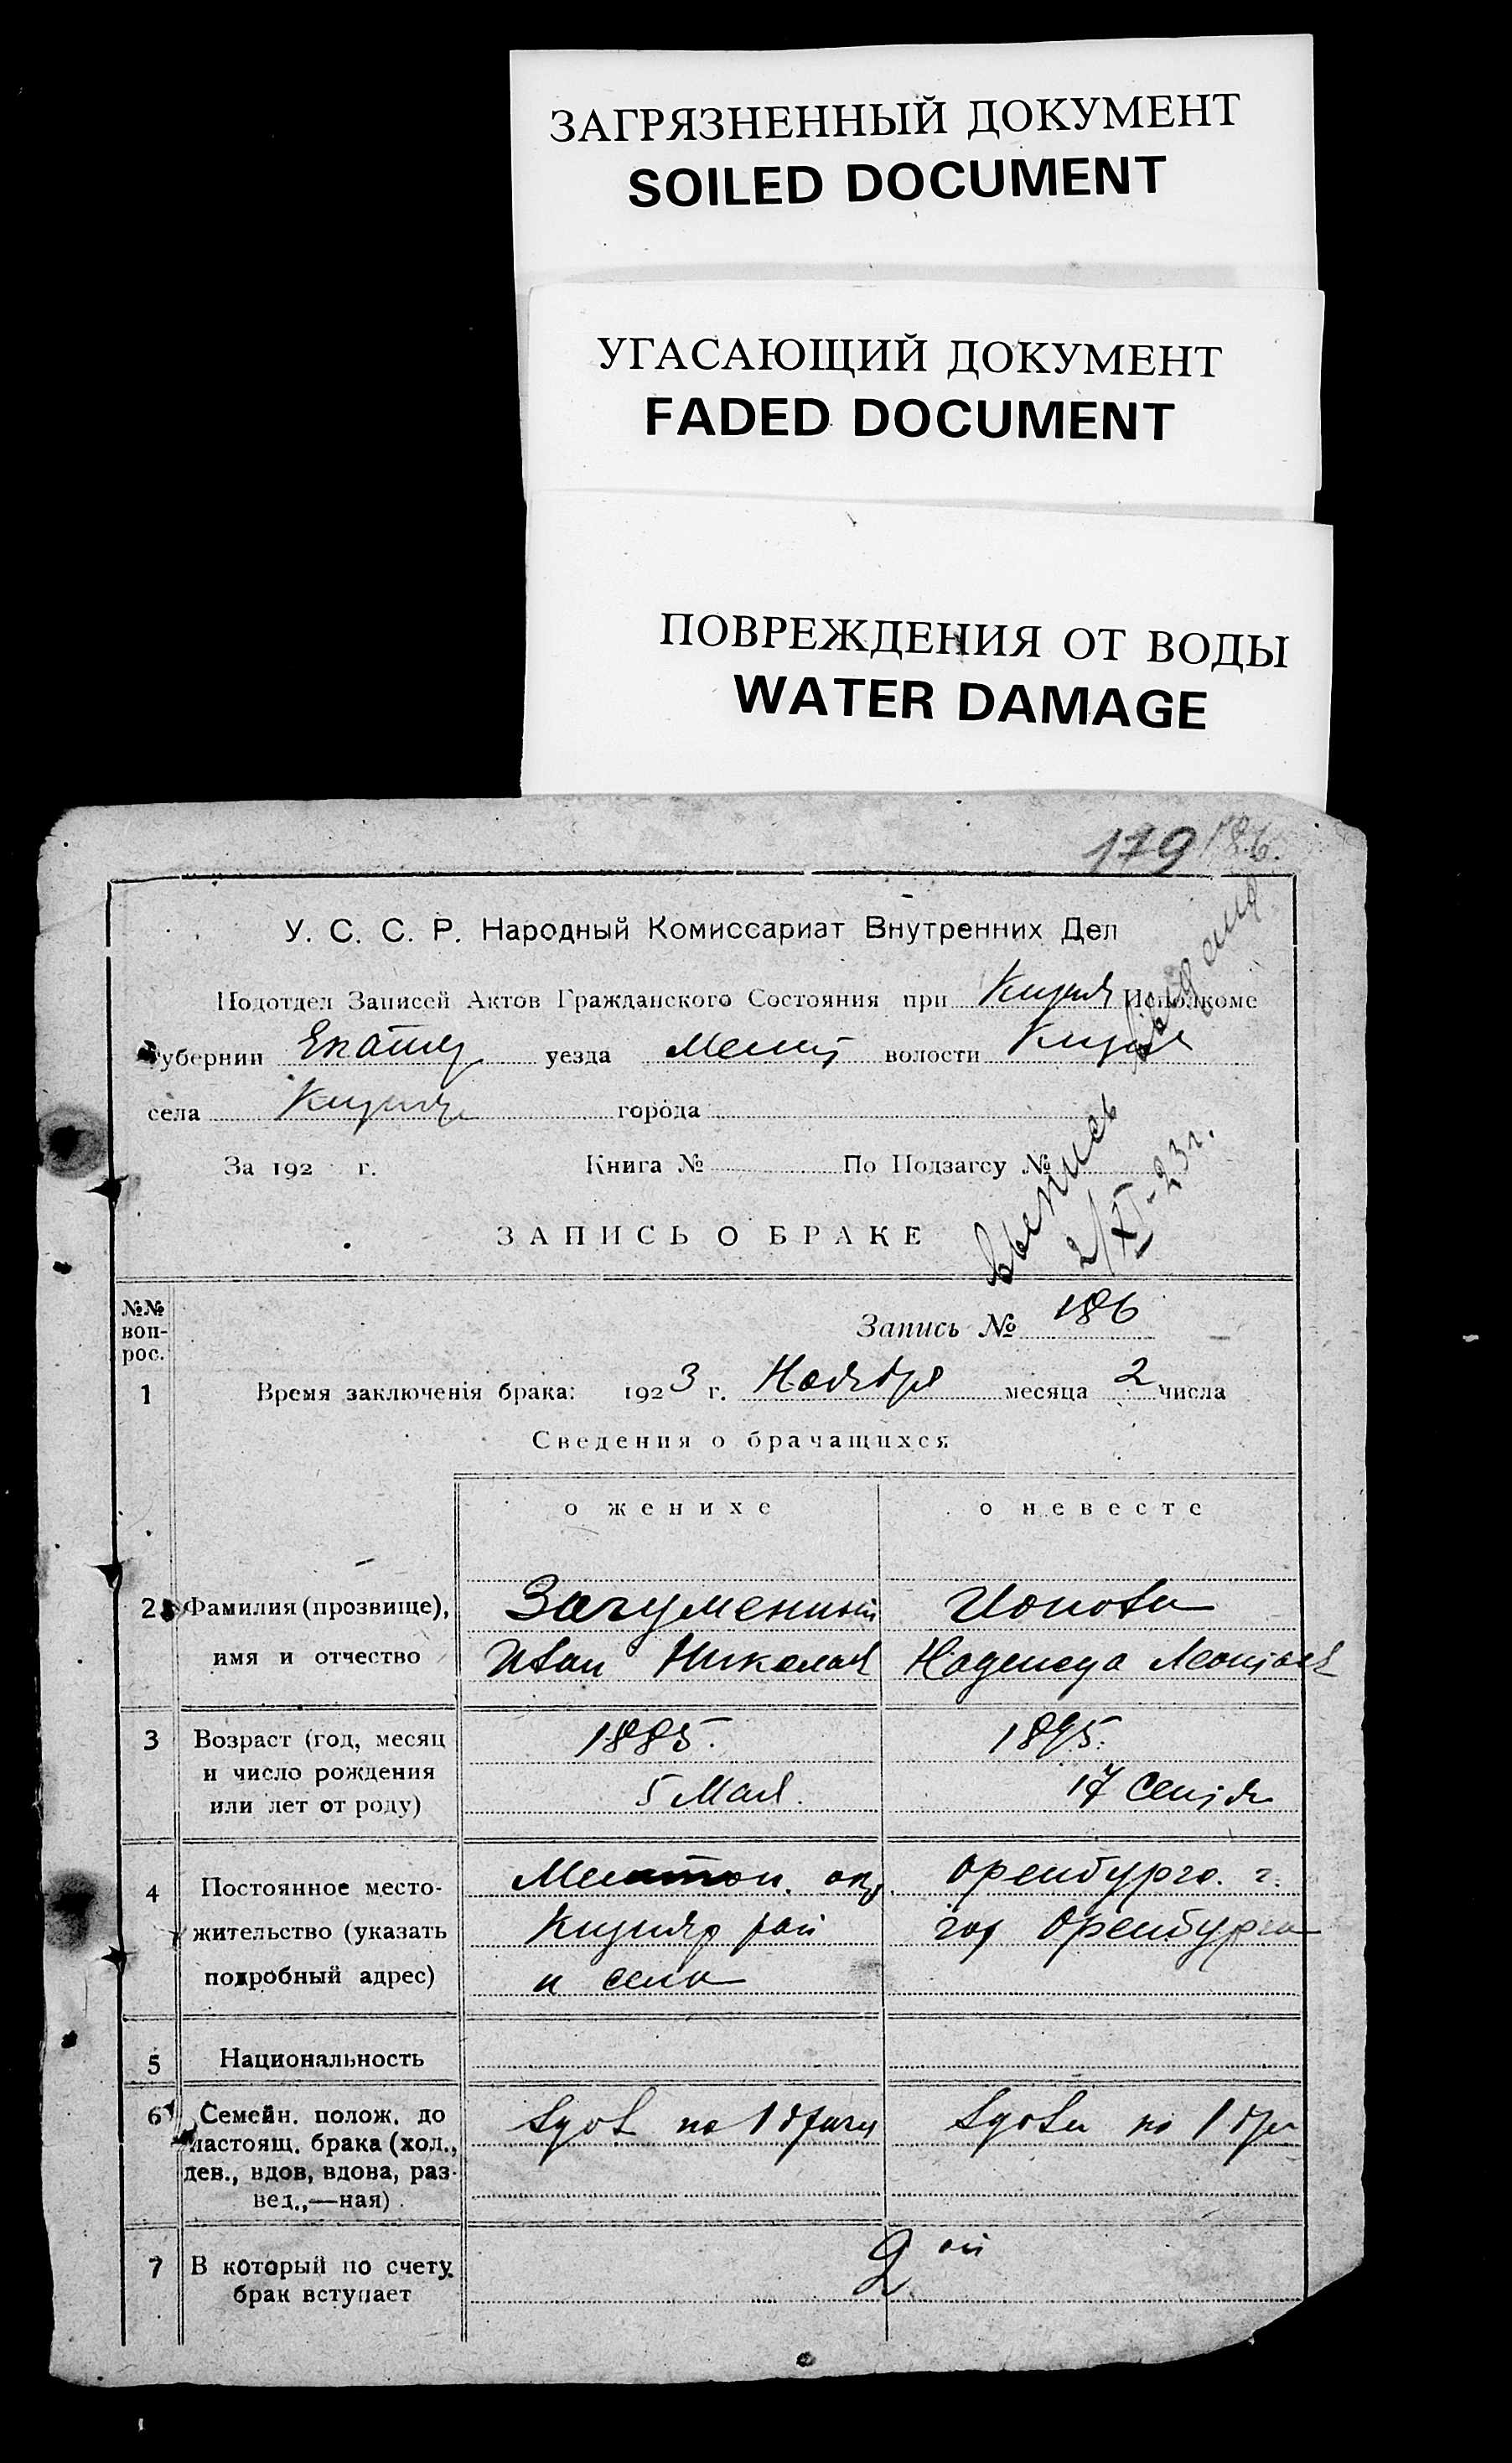 ЗАГРЯЗНЕННЫЙ ДОКУМЕНТ
SOILED DOCUMENT
УГАСАЮЩИЙ ДОКУМЕНТ
FADED DOCUMENT
ПОВРЕЖДЕНИЯ ОТ ВОДЫ
WATER DAMAGE
179 186.
У. С. С. Р. Народный Комиссариат Внутренних Дел
Подотдел Записей Актов Гражданского Состояния при Исполкоме
губернии Екатер уезда Мелит волости
села города
За 192 г. Книга № По Подзагсу №
Выпись выдана
2/XI-23 г.
ЗАПИСЬ О БРАКЕ
№№ воп-рос.
Запись № 186
1 Время заключенія брака: 1923 г. Ноября месяца 2 числа
Сведения о брачащихся
о женихе о невесте
2 Фамилия (прозвище), Загуменный Попова
имя и отчество Иван Николаев Надежда Леонтьев
3 Возраст (год, месяц 1885. 1895.
и число рождения 5 Мая. 17 Сентя
или лет от роду)
4 Постоянное место- Мелитоп. окр. Оренбургс. г.
жительство (указать район гор Оренбурга
подробный адрес) и села
5 Национальность
6 Семейн. полож. до вдов по 1 браку вдова по 1 бра
настоящ. брака (хол.,
дев., вдов, вдова, раз-
вед.,—ная)
7 В который по счету 2 ой
брак вступает